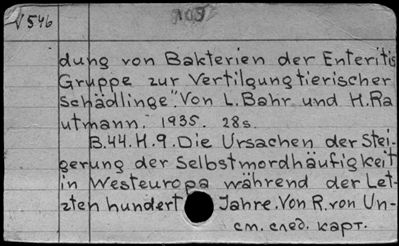 V 546
105
dung von Bakterien der Enteritis
Gruppe zur Vertilgung tierischer
schädlinge". Von L. Bahr und H. Ra
utmann. 1935. 28s.
B.44. H.9. Die Ursachen der Stei-
gerung der Selbstmordhäufigkeit
in Westeuropa während der Let-
zten hundert Jahre. Von R. von Un-
см. след. карт.